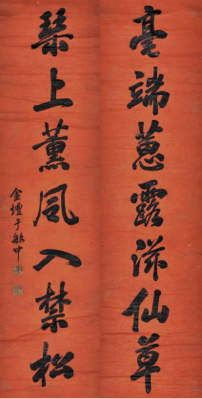 毫端蕙露洋仙草
琴上薰风入禁松
金壇于敏中